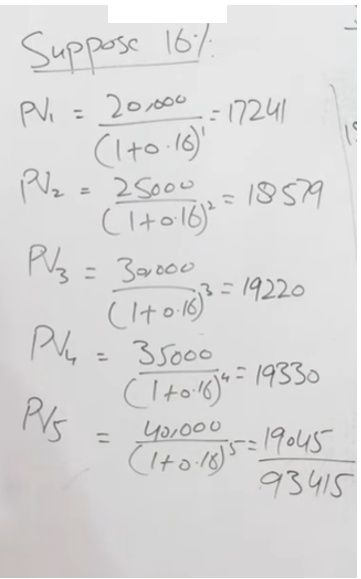 Suppose 16%
PV₁ = 20,000 / (1+0.16)¹ = 17241
PV₂ = 25000 / (1+0.16)² = 18579
PV₃ = 30,000 / (1+0.16)³ = 19220
PV₄ = 35000 / (1+0.16)⁴ = 19330
PV₅ = 40,000 / (1+0.16)⁵ = 19045
93415